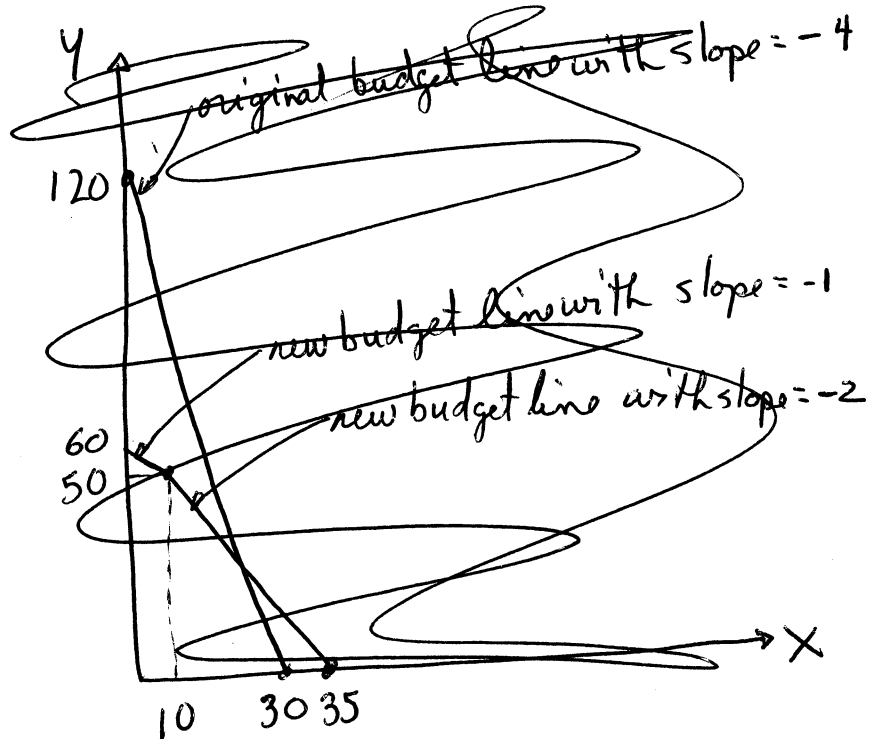 Y
original budget line with slope = - 4
120
new budget line with slope = -1
new budget line with slope = -2
60
50
X
10 30 35